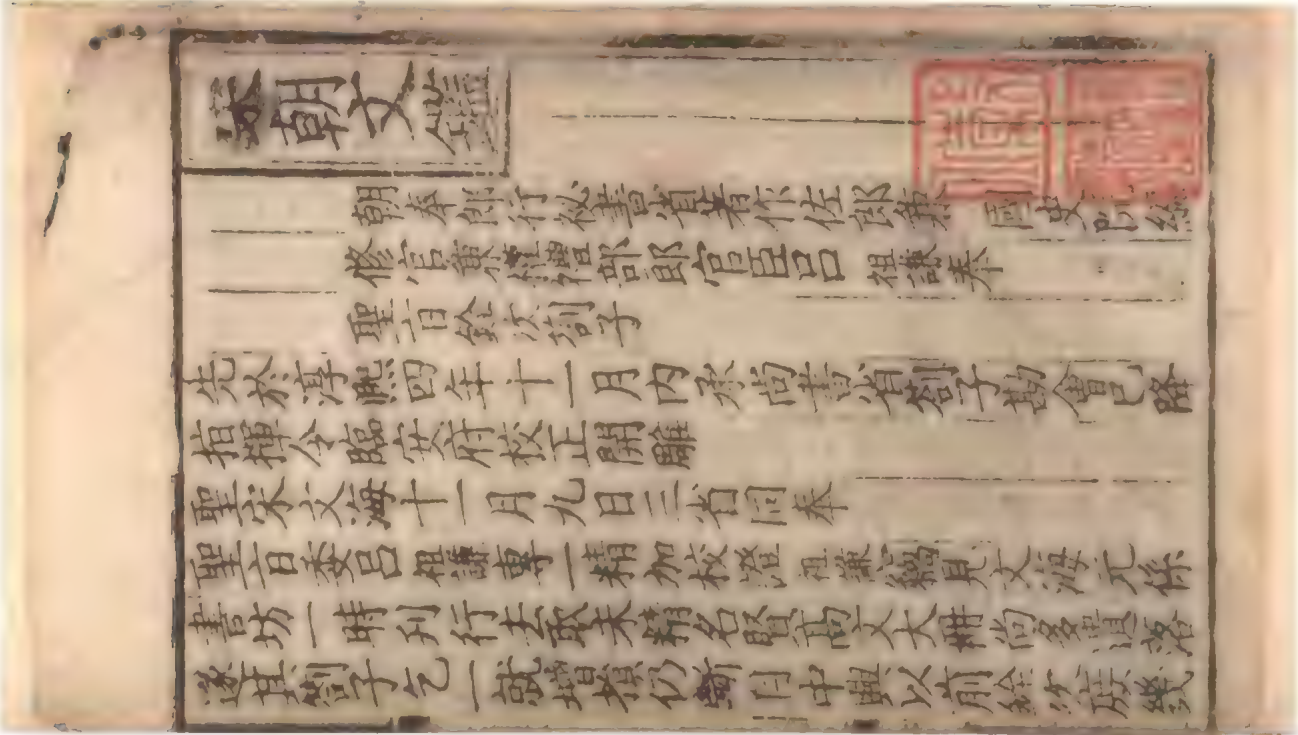 宋朝文鑑
朝奉郎行秘書省著作佐郎兼 國史院編
修官兼權禮部郎官臣呂 祖謙奉
聖旨銓次劄子
先於淳熙四年十一月內承尚書省劄子勘會已降
指揮令臨安府校正開雕
聖宋文海十一月九日三省同奉
聖旨委呂祖謙專一精加校證祖謙竊見文海元係
書坊一時刊行去取未精名賢高文大冊尚多遺落
遂具劄子乞一就增損仍斷自中興以前銓次庶幾